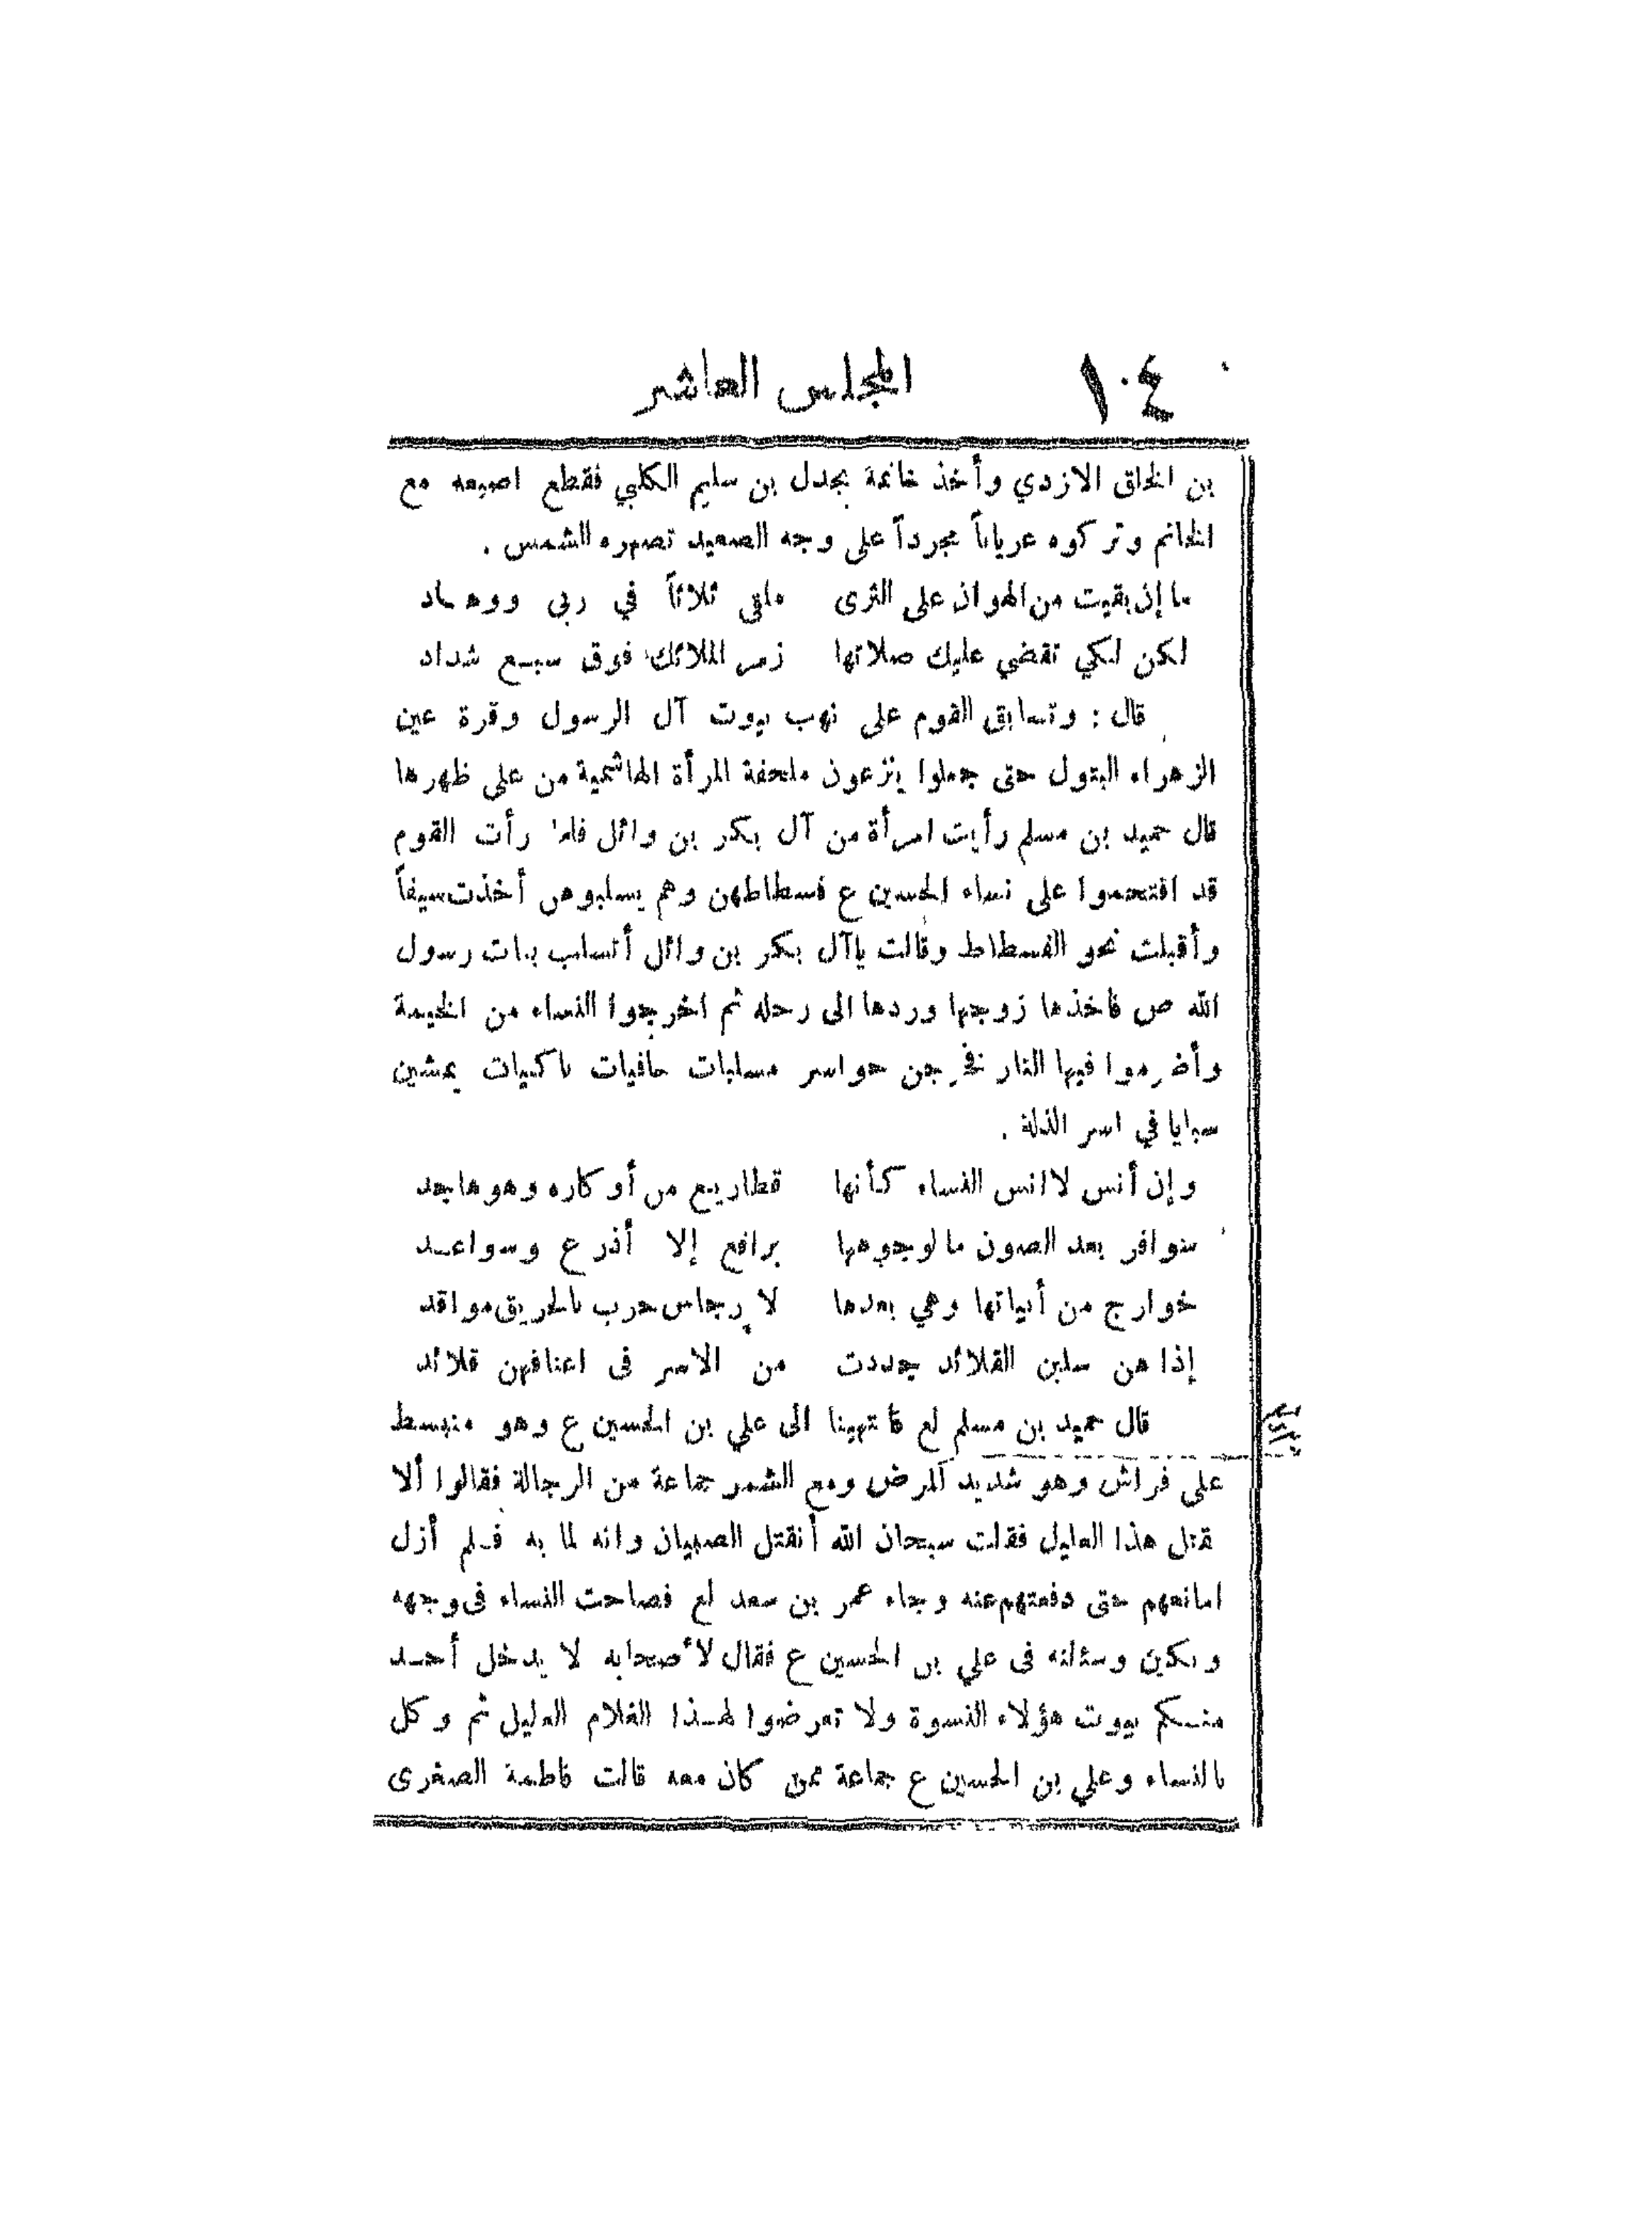 ١٠٤
المجلس العاشر
بن الخلق الازدي وأخذ خاتمه بجدل بن سليم الكلبي فقطع اصبعه مع
الخاتم وتركوه عرياناً مجرداً على وجه الصعيد تصهره الشمس .
ما إن بقيت من الهوان على الثرى ملقى ثلاثاً في ربى ووهـاد
لكن لكي تقضي عليك صلاتها زمر الملائك فوق سبـع شداد
قال : وتسابق القوم على نهب بيوت آل الرسول وقرة عين
الزهراء البتول حتى جعلوا ينزعون ملحفة المرأة الهاشمية من على ظهرها
قال حميد بن مسلم رأيت امرأة من آل بكر بن وائل فلما رأت القوم
قد اقتحموا على نساء الحسين ع فسطاطهن وهم يسلبوهن أخذت سيفاً
وأقبلت نحو الفسطاط وقالت ياآل بكر بن وائل أتسلب بنات رسول
الله ص فاخذها زوجها وردها الى رحله ثم اخرجوا النساء من الخيمة
وأضرموا فيها النار فخرجن حواسر مسلبات حافيات باكيات يمشين
سبايا في اسر الذلة .
وإن أنس لاانس النساء كأنها قطاريع من أوكاره وهو هاجد
سوافر بعد الصون ما لوجوهها براقع إلا أذرع وسواعـد
خوارج من أبياتها وهي بعدها لارجاس حرب بالحريق مواقد
إذا هن سلبن القلائد جددت من الاسر فى اعناقهن قلائد
قال حميد بن مسلم لع فانتهينا الى علي بن الحسين ع وهو منبسط
على فراش وهو شديد المرض ومع الشمر جماعة من الرجالة فقالوا ألا
نقتل هذا العليل فقلت سبحان الله أنقتل الصبيان وانه لما به فـلم أزل
امانعهم حتى دفعتهم عنه وجاء عمر بن سعد لع فصاحت النساء فى وجهه
وبكين وسئلنه فى علي بن الحسين ع فقال لأصحابه لا يدخل أحـد
منـكم بيوت هؤلاء النسوة ولا تعرضوا لهـذا الغلام العليل ثم وكل
بالنساء وعلي بن الحسين ع جماعة ممن كان معه قالت فاطمة الصغرى